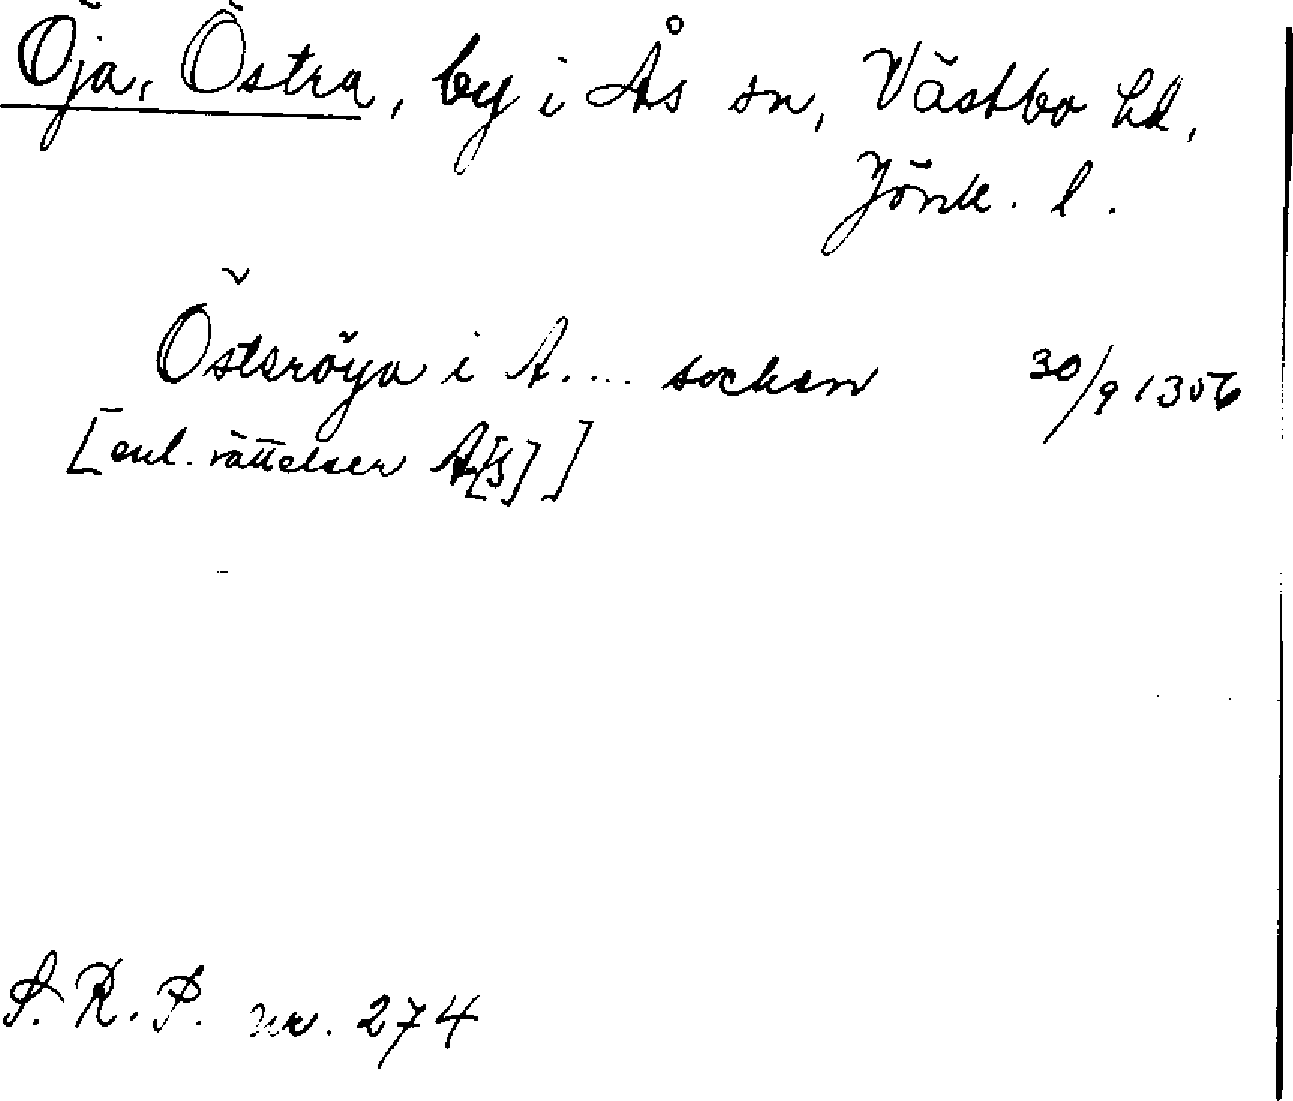 Öja, Östra, by i Ås sn, Västbo hd,
Jönk. l.
Östsröya i A.... socken 30/9 1356
[enl. rättelser A[s]]
S. R. P. nr. 274